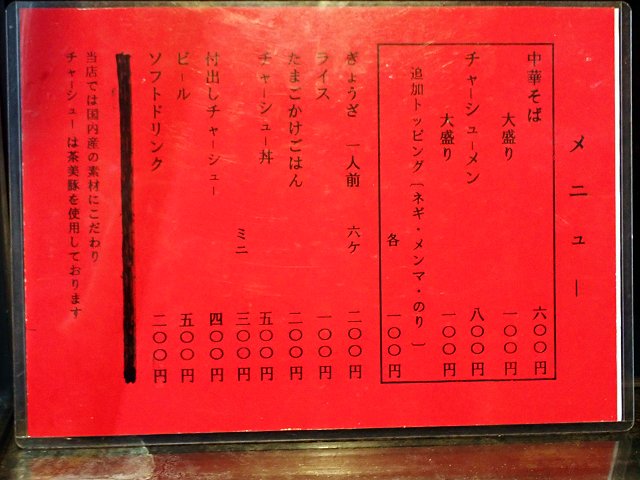 メニュー
中華そば 六〇〇円
大盛り 一〇〇円
チャーシューメン 八〇〇円
大盛り 一〇〇円
追加トッピング〔ネギ・メンマ・のり〕
各 一〇〇円
ぎょうざ 一人前 六ケ 二〇〇円
ライス 一〇〇円
たまごかけごはん 二〇〇円
チャーシュー丼 五〇〇円
ミニ 三〇〇円
付出しチャーシュー 四〇〇円
ビール 五〇〇円
ソフトドリンク 二〇〇円
当店では国内産の素材にこだわり
チャーシューは茶美豚を使用しております